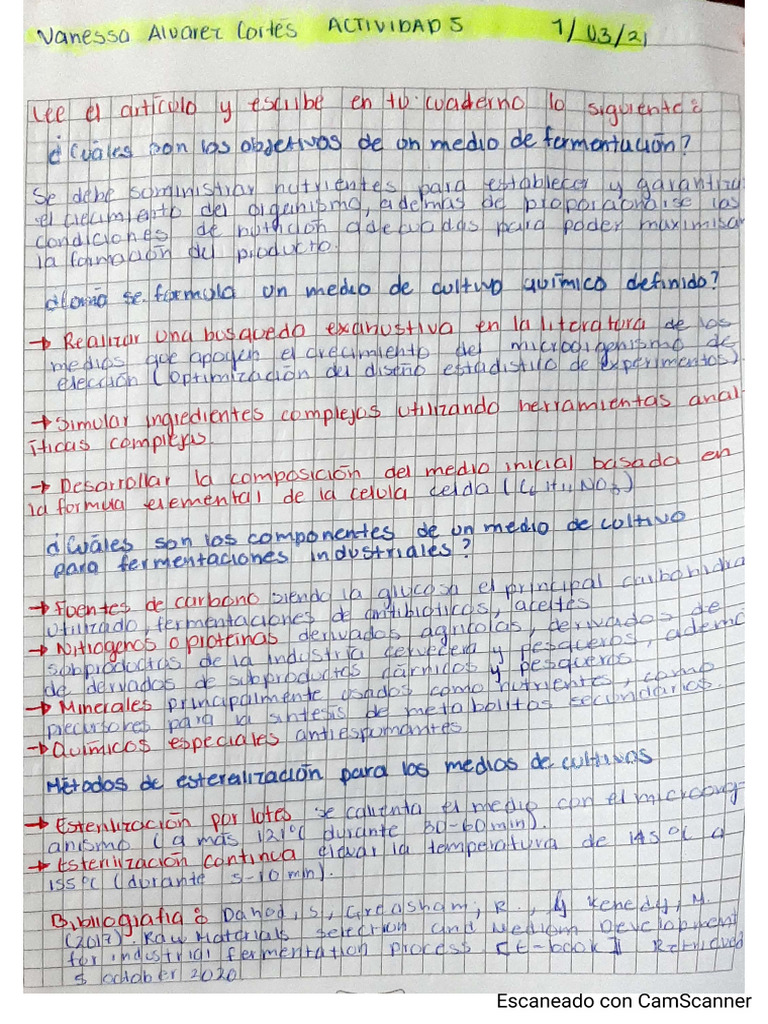 Vanessa Alvarez Cortés ACTIVIDAD 5 1/03/21
Lee el artículo y escribe en tu cuaderno lo siguiente:
¿Cuáles son los objetivos de un medio de fermentación?
Se debe suministrar nutrientes para establecer y garantizar
el crecimiento del organismo, además de proporcionarse las
condiciones de nutrición adecuadas para poder maximisar
la formación del producto.
¿Como se formula un medio de cultivo químico definido?
→ Realizar una busquedo exahustiva en la literatura de los
medios que apoyen el crecimiento del microorigenismo de
elección (optimización del diseño estadistico de experimentos)
→ Simular ingredientes complejos utilizando herramientas anal-
íticas complejas.
→ Desarrollar la composición del medio inicial basada en
la formula elemental de la celula celda (C6 H11 NO3)
¿Cuáles son los componentes de un medio de cultivo
para fermentaciones industriales?
→ Fuentes de carbono siendo la glucosa el principal carbohidra
utilizado, fermentaciones de antibioticos, aceites
→ Nitrogenos o proteinas derivados agrícolas, derivados de
subproductos de la industria cervecera y pesqueros, ademá
de derivados de subproductos cárnicos y pesqueros.
→ Minerales principalmente usados como nutrientes, como
precursores para la síntesis de metabolitos secundarios.
→ Químicos especiales antiespumantes
Métodos de esteralización para los medios de cultivos
→ Esterilización por lotes se calienta el medio con el microorg
anismo (a más 121°C durante 30-60min).
→ Esterilización continua elevar la temperatura de 145°C a
155°C (durante 5-10 min).
Bibliografia: Danod, S, Greasham, R., & Kenedy, M.
(2017). Raw Materials selection and Medium Development
for industrial fermentation process [E-book] Retrieved
5 octhober 2020
Escaneado con CamScanner